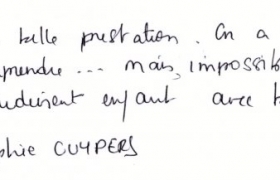 belle prestation. On a
prendre... mais, impossib
enfant avec
phie CUYPERS